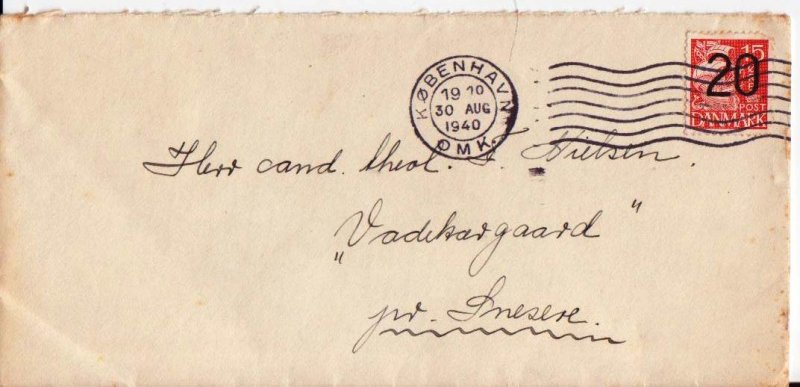 KØBENHAVN
19 10
30 AUG
1940
OMK.
15
20
POST
DANMARK
Herr cand. theol. F. Nielsen.
„Vadekærgaard"
pr. Snesere.